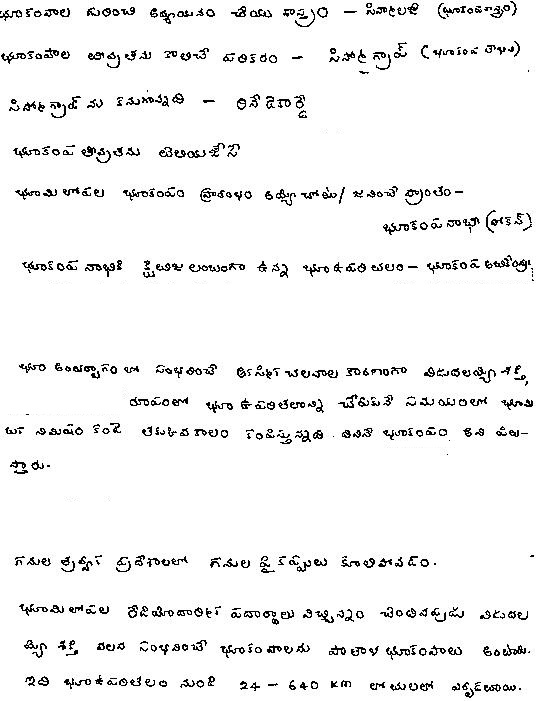 భూకంపాల గురించి అధ్యయనం చేయు శాస్త్రం – సిస్మాలజి (భూకంపశాస్త్రం)
భూకంపాల తీవ్రతను కొలిచే పరికరం – సిస్మోగ్రాఫ్ (భూకంప లేఖిని)
సిస్మోగ్రాఫ్ ను కనుగొన్నది –
భూకంప తీవ్రతను తెలియజేసే
భూమిలోపల భూకంపం ప్రారంభం అయ్యే చోటు/ జనించే ప్రాంతం –
భూకంప నాభి (ఫోకస్)
భూకంప నాభికి క్షితిజ లంబంగా ఉన్న భూఉపరితలం – భూకంప అధికేంద్రం
భూ అంతర్భాగం లో సంభవించే ఆకస్మిక చలనాల కారణంగా విడుదలయ్యే శక్తి,
రూపంలో భూ ఉపరితలాన్ని చేరుకునే సమయంలో భూమి
ఒక నిమిషం కంటే తక్కువ కాలం కంపిస్తున్నది. దీనినే భూకంపం అని పిలు-
స్తారు.
గనుల త్రవ్వక ప్రదేశాలలో గనుల పై కప్పులు కూలిపోవడం.
భూమిలోపల రేడియోధార్మిక పదార్థాలు విచ్ఛిన్నం చెందినప్పుడు విడుదల
య్యే శక్తి వలన సంభవించే భూకంపాలను పాతాళ భూకంపాలు అంటారు.
ఇవి భూఉపరితలం నుండి 24 – 640 km లోతులలో ఏర్పడతాయి.